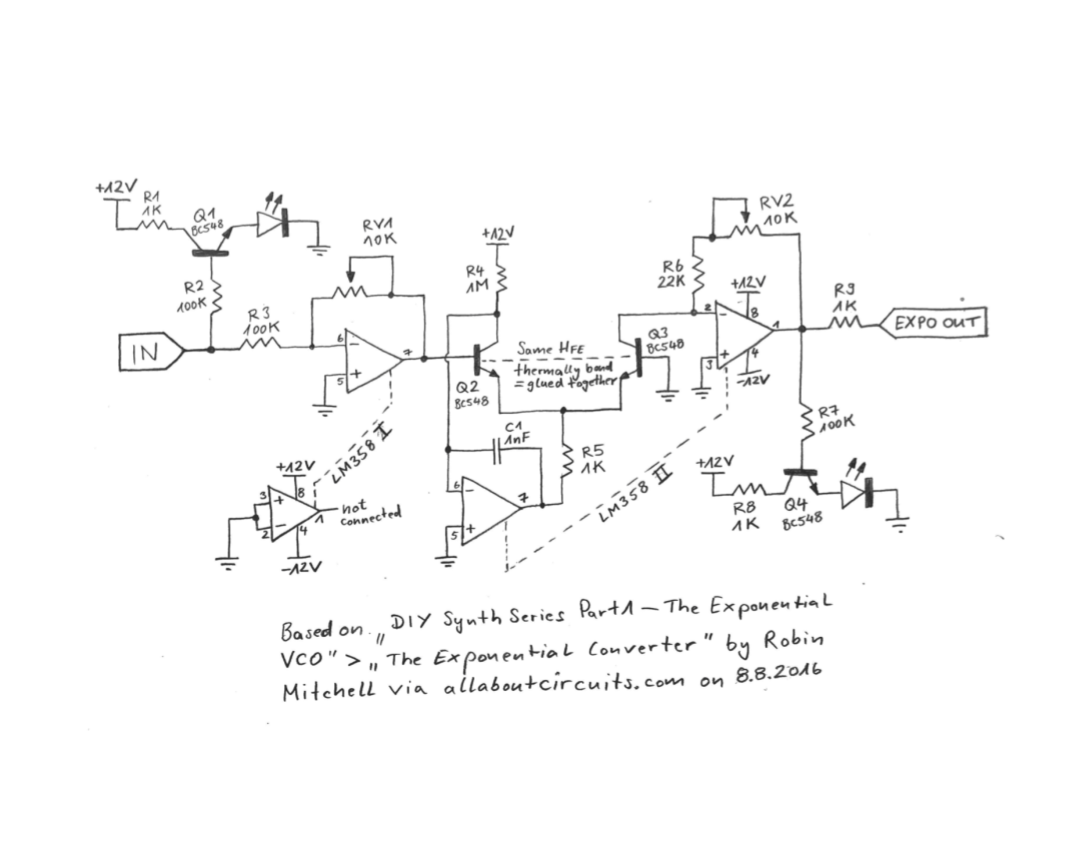 +12V
R1
1K
Q1
BC548
R2
100K
IN
R3
100K
RV1
10K
6
5
7
+12V
R4
1M
Q2
BC548
Same HFE
thermally band
= glued together
Q3
BC548
C1
1nF
R5
1K
6
5
7
LM358 I
LM358 II
+12V
3
2
8
1
4
-12V
not
connected
R6
22K
RV2
10K
+12V
2
3
8
1
4
-12V
R9
1K
EXPO OUT
R7
100K
+12V
R8
1K
Q4
BC548
Based on „DIY Synth Series Part1 — The Exponential
VCO" > „The Exponential Converter" by Robin
Mitchell via allaboutcircuits.com on 8.8.2016